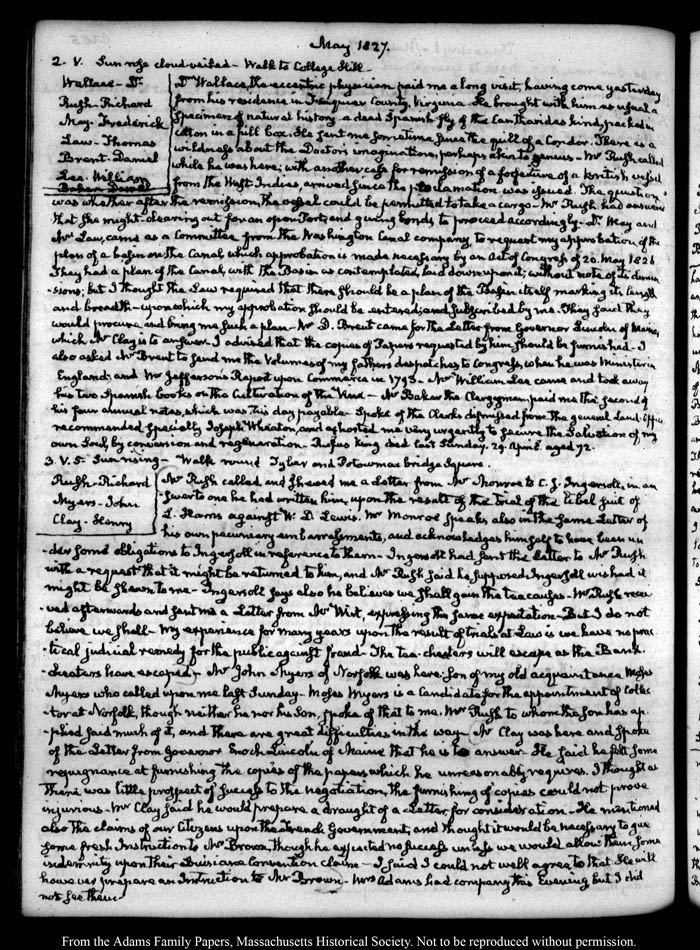 May 1827.
2. V. Sun rose cloud-veiled - Walk to College Hill -
Wallace - Dr.
Rush - Richard
May - Frederick
Law - Thomas
Brent - Daniel
Lee - William
Baker - Daniel
Dr Wallace, the eccentric physician paid me a long visit, having come yesterday
from his residence in Fauquier County, Virginia. He brought with him as usual a
Specimen of natural history - a dead Spanish fly of the Cantharides kind, packed in
cotton in a pill box. He sent me sometime since the quill of a Condor. There is a
wildness about the Doctor's imagination, perhaps akin to genius - Mr Rush called
while he was here; with another case for remission of a forfeiture of a British vessel
from the West Indies, arrived since the proclamation was issued. The question
was whether after the remission, the vessel could be permitted to take a cargo - Mr Rush had answered
that she might - clearing out for an open Port; and giving bonds to proceed accordingly - Dr May and
Mr Law, came as a Committee from the Washington Canal company, to request my approbation of the
plan of a basin on the Canal, which approbation is made necessary by an Act of Congress of 20. May 1826
They had a plan of the Canal, with the Basin as contemplated, laid down upon it; without note of its dimen
-sions; but I thought the Law required that there should be a plan of the Basin itself marking its length
and breadth - upon which my approbation should be entered; and subscribed by me. They said they
would procure and bring me such a plan - Mr D. Brent came for the Letter from Governor Lincoln of Maine,
which Mr Clay is to answer. I advised that the copies of Papers requested by him should be furnished - I
also asked Mr Brent to send me the Volumes of my father's despatches to Congress, when he was Minister in
England; and Mr Jefferson's Report upon Commerce in 1793. Mr William Lee came and took away
his two Spanish books on the Cultivation of the Vine - Mr Baker the Clergyman, paid me the second of
his four annual notes, which was this day payable - Spoke of the Clerks dismissed from the general Land Office
recommended specially Joseph Wheaton, and exhorted me very urgently to secure the Salvation of my
own Soul, by conversion and regeneration. Rufus King died last Sunday. 29 April aged 72.
3. V. 5. Sun rising - Walk round Tyber and Potowmac bridge Square.
Rush - Richard
Myers - John
Clay - Henry
Mr Rush called and shewed me a Letter from Mr Monroe to C. J. Ingersoll, in an
-swer to one he had written him, upon the result of the trial of the libel suit of
L. Harris against W. D. Lewis. Mr Monroe speaks also in the same Letter of
his own pecuniary embarrassments, and acknowledges himself to have been un
-der some obligations to Ingersoll in reference to them - Ingersoll had sent the Letter to Mr Rush
with a request that it might be returned to him, and Mr Rush said he supposed Ingersoll wished it
might be shewn to me - Ingersoll says also he believes we shall gain the tea causes - Mr Rush recei
-ved afterwards and sent me a Letter from Mr Wirt, expressing the same expectation - But I do not
believe we shall - My experience for many years upon the result of trials at Law is we have no prac
-tical judicial remedy for the public against fraud - The tea-cheaters will escape as the Bank.
-cheaters have escaped - Mr John Myers of Norfolk was here: Son of my old acquaintance Moses
Myers who called upon me last Sunday - Moses Myers is a Candidate for the appointment of Collec
-tor at Norfolk, though neither he nor his Son, spoke of that to me. Mr Rush to whom the Son has ap
-plied said much of it, and there are great difficulties in the way - Mr Clay was here and spoke
of the Letter from Governor Enoch Lincoln of Maine that he is to answer - He said he felt some
repugnance at furnishing the copies of the papers which he unreasonably requires. I thought as
there was little prospect of success to the negotiation, the furnishing of copies could not prove
injurious - Mr Clay said he would prepare a draught of a Letter, for consideration - He mentioned
also the claims of our Citizens upon the French Government, and thought it would be necessary to give
some fresh Instructions to Mr Brown, though he expected no success unless we would allow them some
indemnity upon their Louisiana Convention claim - I said I could not well agree to that. He will
however prepare an Instruction to Mr Brown - Mrs Adams had company this Evening but I did
not see them
From the Adams Family Papers, Massachusetts Historical Society. Not to be reproduced without permission.